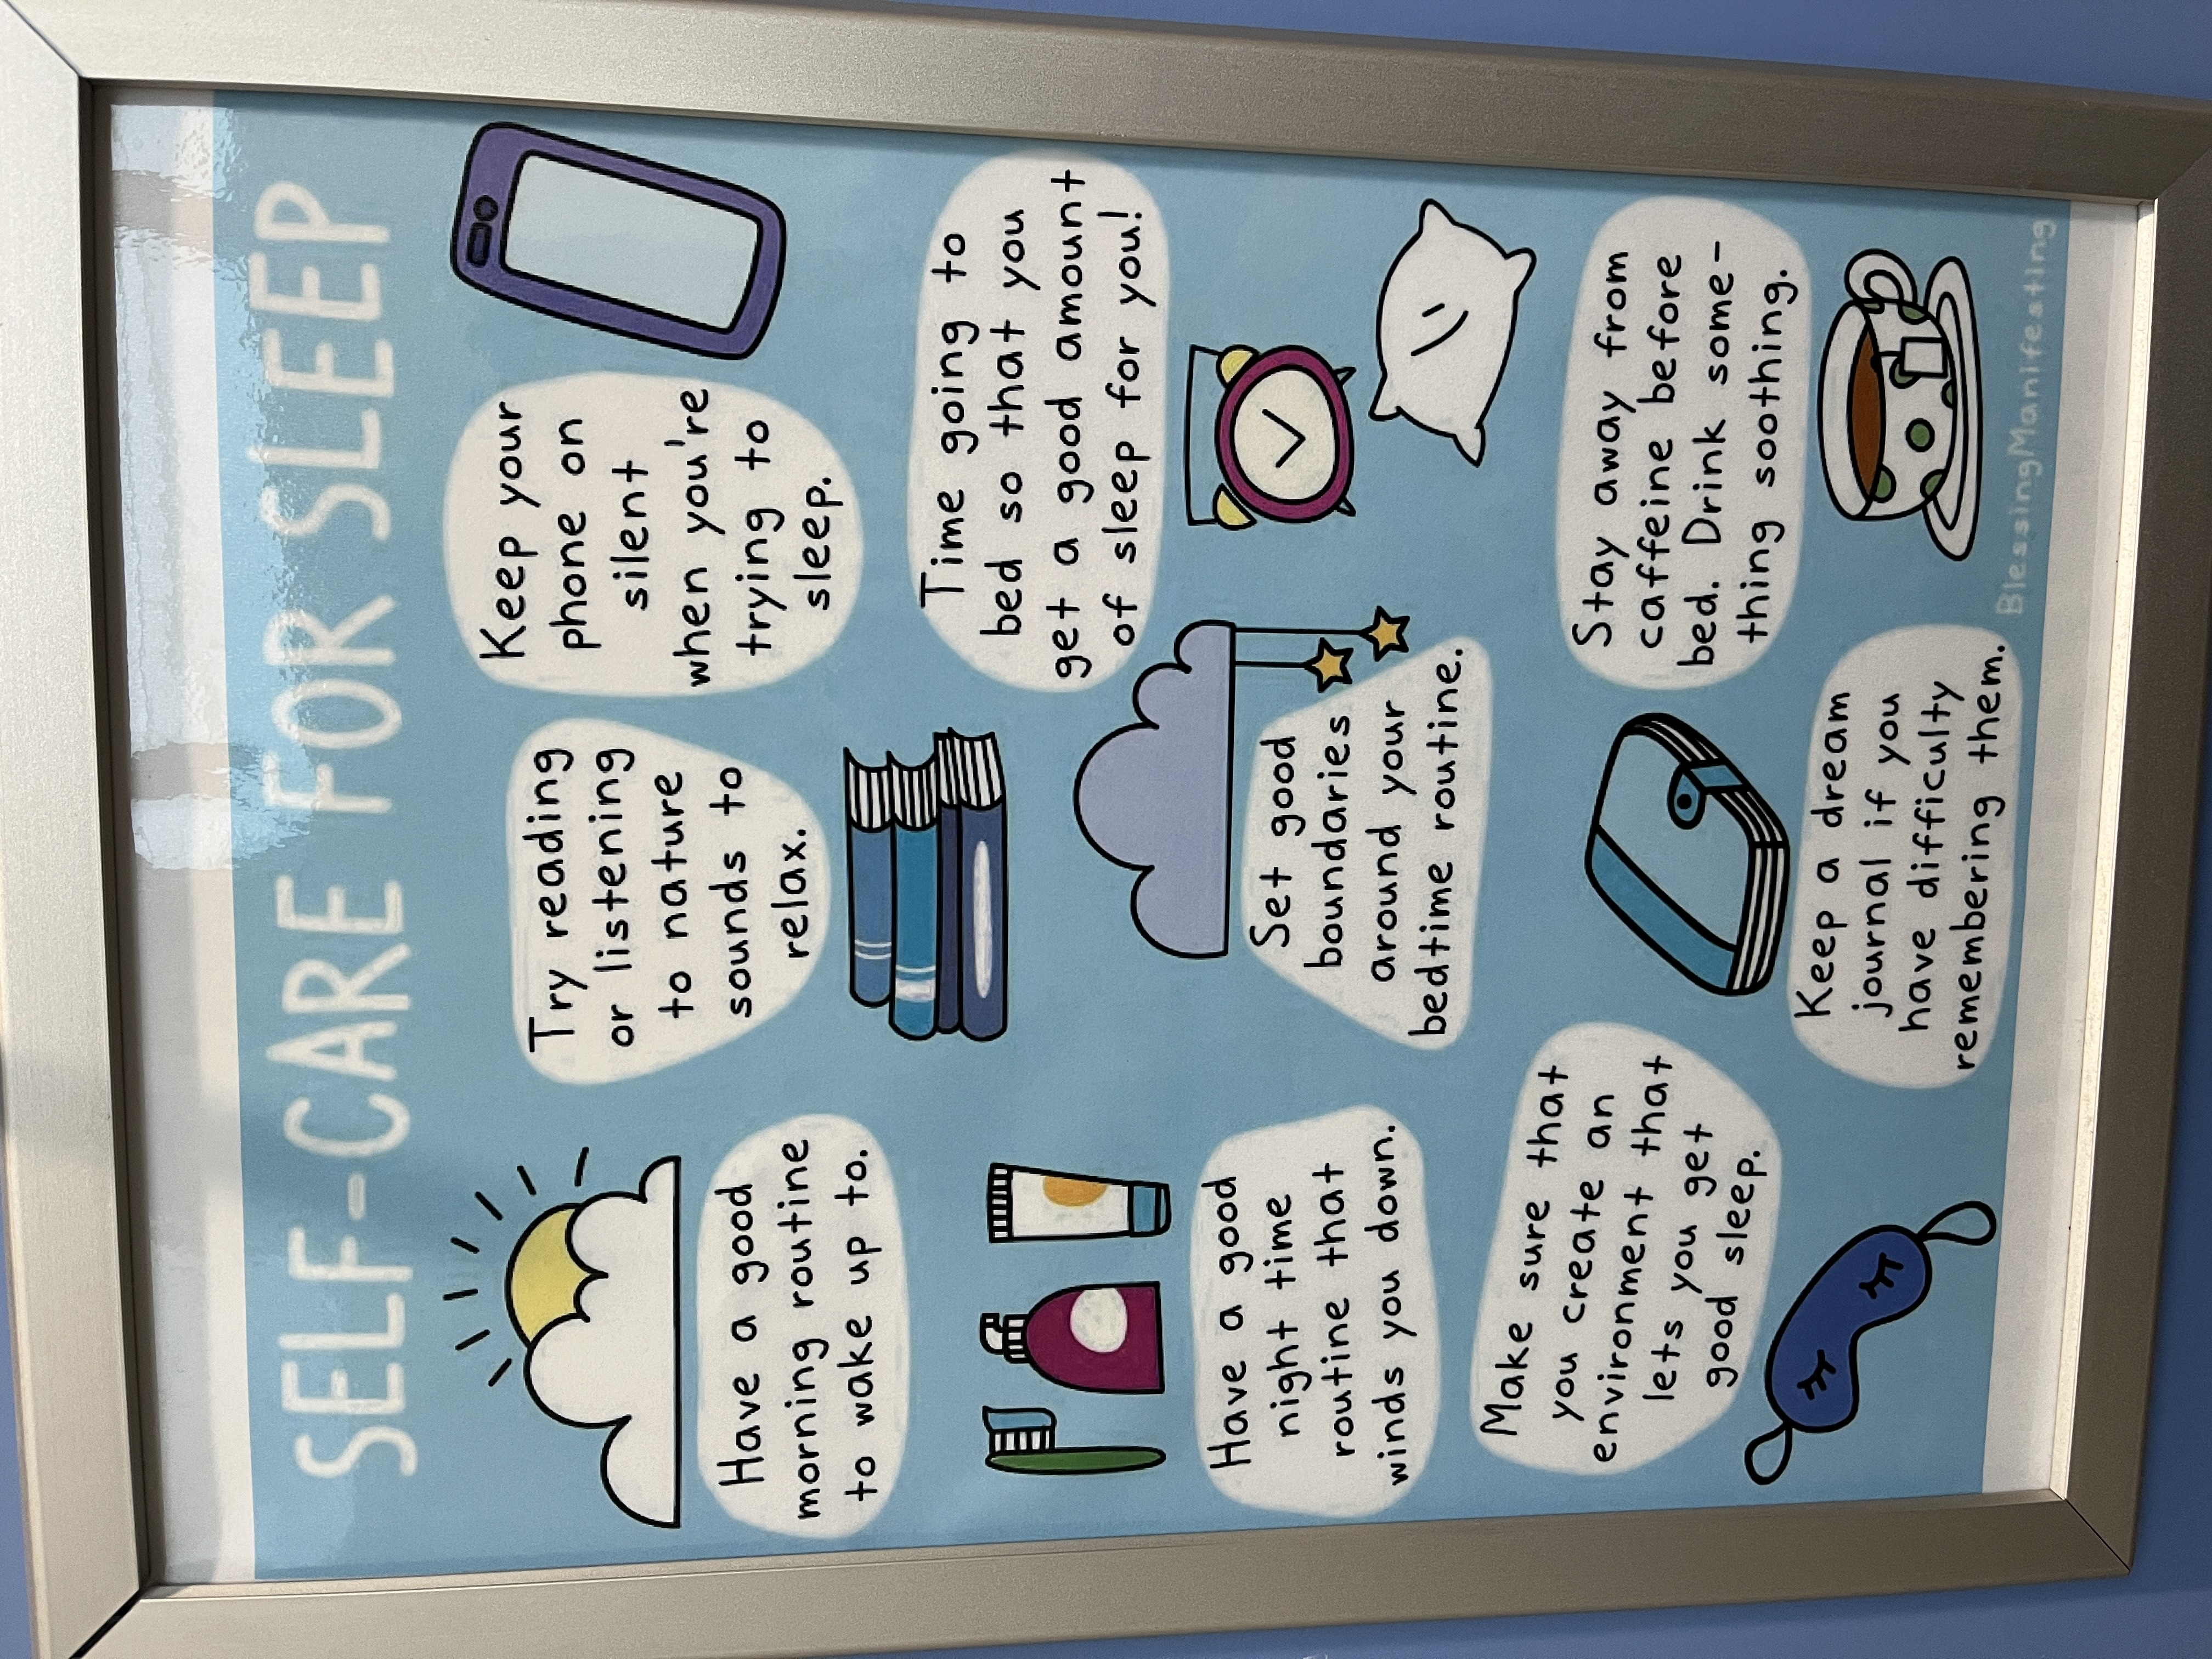 SELF-CARE FOR SLEEP
Have a good
morning routine
to wake up to.
Try reading
or listening
to nature
sounds to
relax.
Keep your
phone on
silent
when you're
trying to
sleep.
Have a good
night time
routine that
winds you down.
Set good
boundaries
around your
bedtime routine.
Time going to
bed so that you
get a good amount
of sleep for you!
Make sure that
you create an
environment that
lets you get
good sleep.
Keep a dream
journal if you
have difficulty
remembering them.
Stay away from
caffeine before
bed. Drink some-
thing soothing.
BlessingManifesting